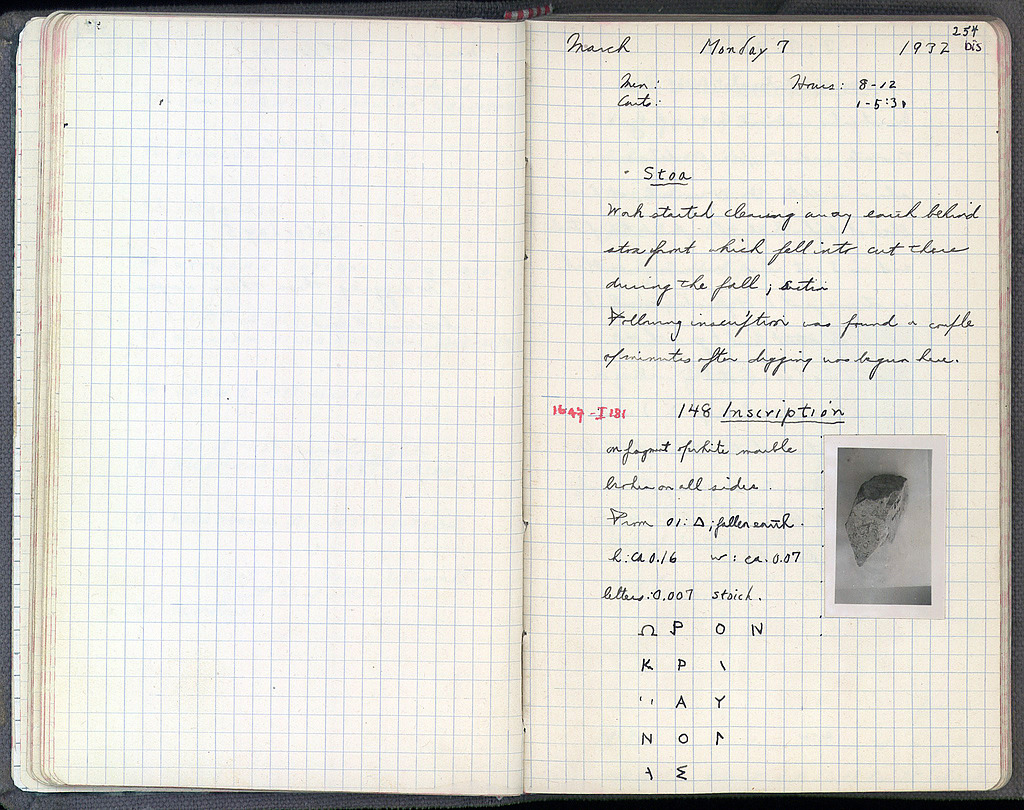 254
March Monday 7 1932 bis
Men: Hours: 8-12
Carts: 1-5:30
Stoa
Work started clearing away earth behind
stoa front which fell into cut there
during the fall;
Following inscription was found a couple
of minutes after digging was begun here.
1647-I 181 148 Inscription
on fragment of white marble
broken on all sides.
From 01:Δ; fallen earth.
h: ca 0.16 w: ca. 0.07
letters: 0.007 stoich.
Ω Ρ Ο Ν
Κ Ρ Ι
' ' Α Υ
Ν Ο
Σ